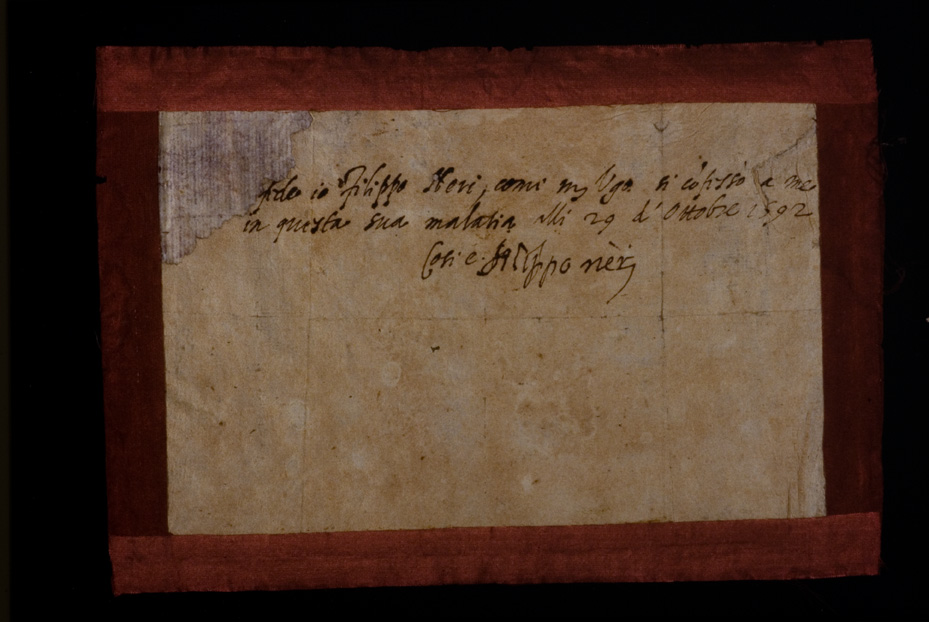 fede io Filippo Neri, come mʒ Ugo si cõfessò a me
in questa sua malatia alli 29 d'Ottobre 1592
Cosi e. Filippo neri